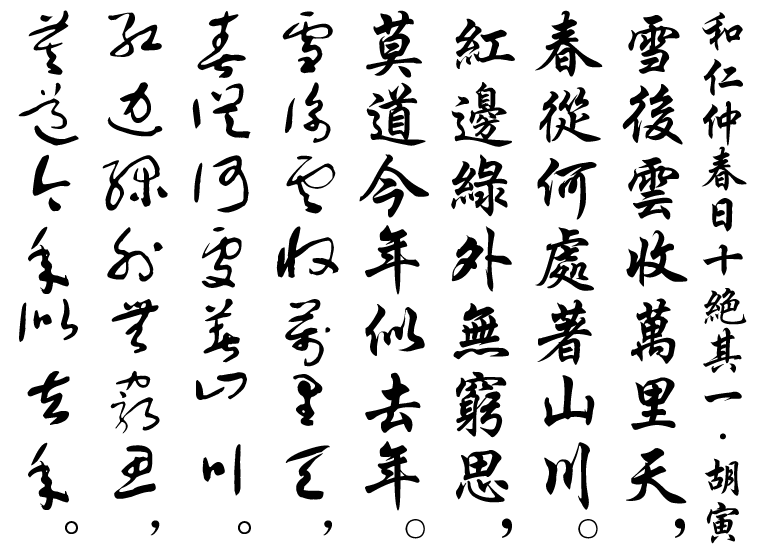 和仁仲春日十絶其一·胡寅
雪後雲收萬里天，
春從何處著山川。
紅邊綠外無窮思，
莫道今年似去年。
雪後雲收萬里天，
春從何處著山川。
紅邊綠外無窮思，
莫道今年似去年。